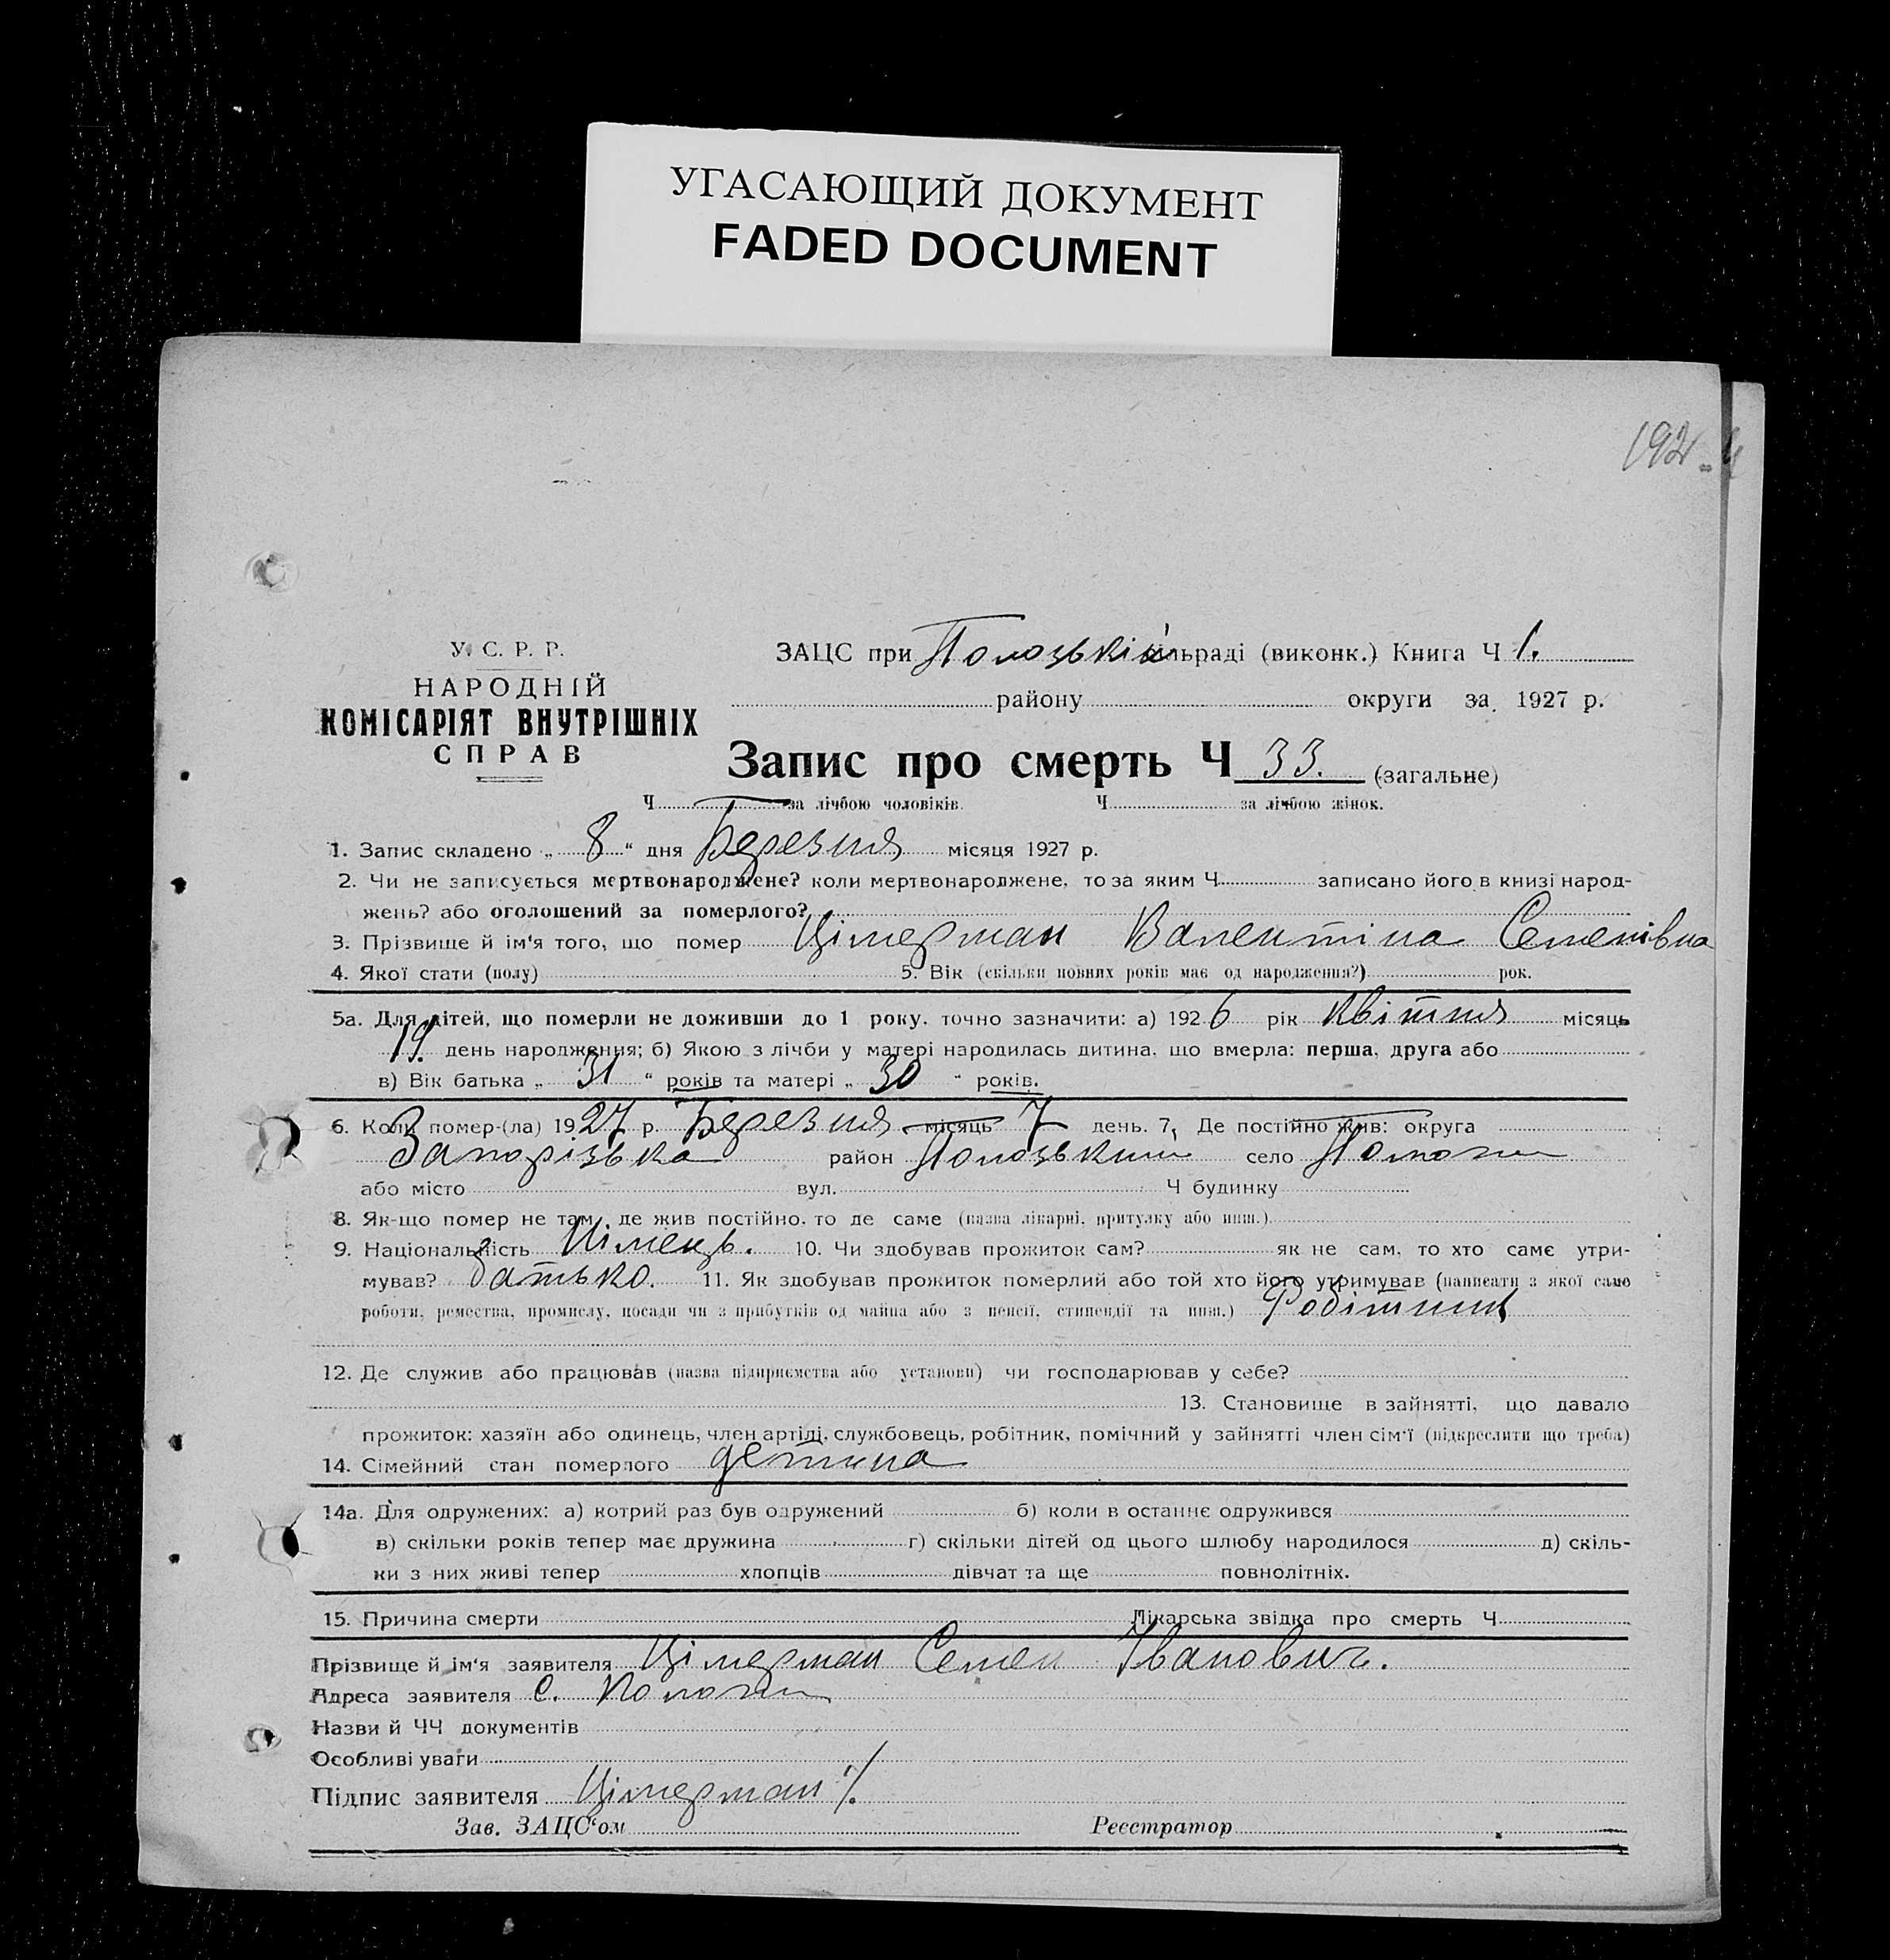 УГАСАЮЩИЙ ДОКУМЕНТ
FADED DOCUMENT
192
У. С. Р. Р.
НАРОДНІЙ
КОМІСАРІЯТ ВНУТРІШНІХ
СПРАВ
ЗАЦС при Полозькій сільраді (виконк.) Книга Ч 1.
району округи за 1927 р.
Запис про смерть Ч 33. (загальне)
Ч за лічбою чоловіків. Ч за лічбою жінок.
1. Запис складено „ 8 “ дня Березня місяця 1927 р.
2. Чи не записується мертвонароджене? коли мертвонароджене, то за яким Ч записано його в книзі народ-
жень? або оголошений за померлого?
3. Прізвище й ім'я того, що помер Цімерман Валентіна Семенівна
4. Якої стати (полу) 5. Вік (скільки повних років має од народження?) рок.
5а. Для дітей, що померли не доживши до 1 року, точно зазначити: а) 1926 рік Квітня місяць
19 день народження; б) Якою з лічби у матері народилась дитина, що вмерла: перша, друга або
в) Вік батька „ 31 “ років та матері „ 30 “ років.
6. Коли помер-(ла) 1927 р. Березня місяць 7 день. 7. Де постійно жив: округа
Запорізька район Полозький село Пологи
або місто вул. Ч будинку
8. Як-що помер не там, де жив постійно, то де саме (назва лікарні, притулку або инш.)
9. Національність Німець. 10. Чи здобував прожиток сам? як не сам, то хто саме утри-
мував? батько. 11. Як здобував прожиток померлий або той хто його утримував (написати з якої само
роботи, ремества, промислу, посади чи з прибутків од майна або з пенсії, стипендії та инш.) Робітник
12. Де служив або працював (назва підприємства або установи) чи господарював у себе?
13. Становище в зайнятті, що давало
прожиток: хазяїн або одинець, член артілі, службовець, робітник, помічний у зайнятті член сім'ї (підкреслити що треба)
14. Сімейний стан померлого детина
14а. Для одружених: а) котрий раз був одружений б) коли в останнє одружився
в) скільки років тепер має дружина г) скільки дітей од цього шлюбу народилося д) скіль-
ки з них живі тепер хлопців дівчат та ще повнолітніх.
15. Причина смерти Лікарська звідка про смерть Ч
Прізвище й ім'я заявителя Цімерман Семен Іванович.
Адреса заявителя с. Пологи
Назви й ЧЧ документів
Особливі уваги
Підпис заявителя Цімерман
Зав. ЗАЦС'ом Реєстратор